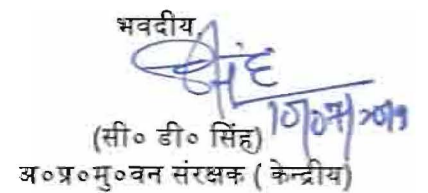 भवदीय,
सिंह
10/07/2019
(सी० डी० सिंह)
अ०प्र०मु०वन संरक्षक ( केन्द्रीय)